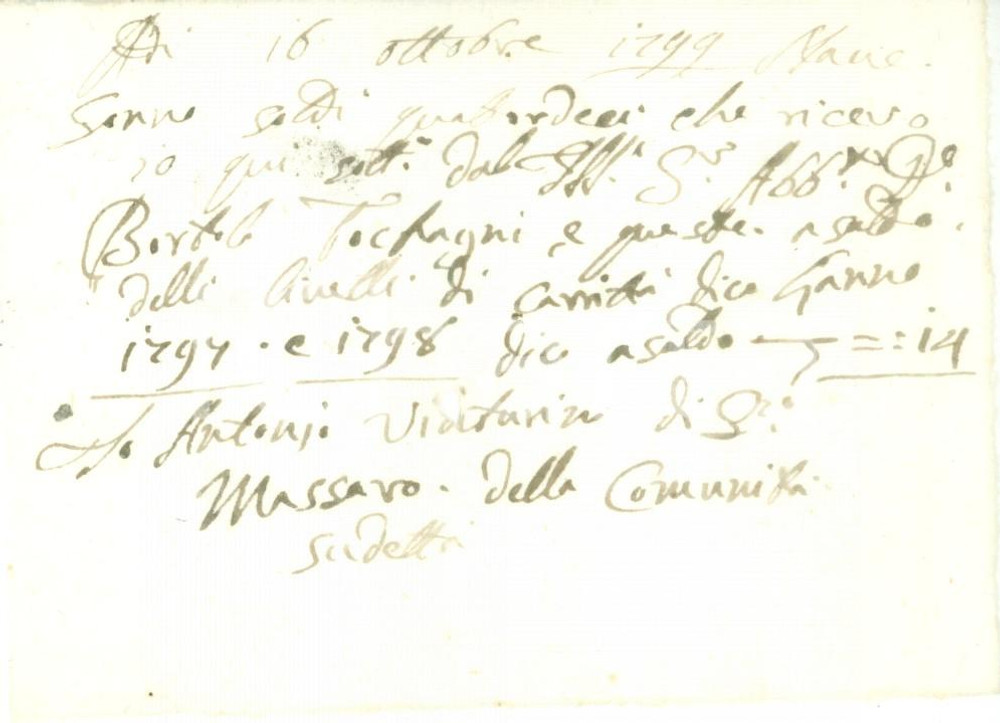 Adi 16 ottobre 1799 Naue.
Sonno soldi quatordeci che ricevo
io qui sott.o dal Ill. S.r Abb.
Bortolo Tochagni e queste a saldo
delli livelli di carrità dico Lanno
1797. e 1798 dico a saldo == : 14
Io Antonio di
Massaro. della Comunità
sudetta